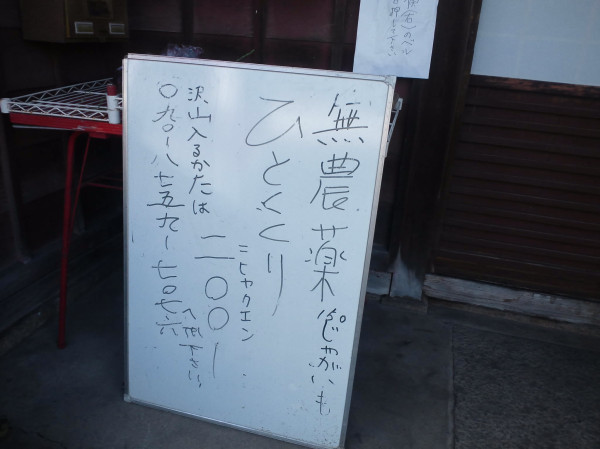 無農薬じゃがいも
ひとくくり
ニヒャクエン
二〇〇ー
沢山入るかたは
〇九〇ー八七五九ー七〇七六
へ下さい